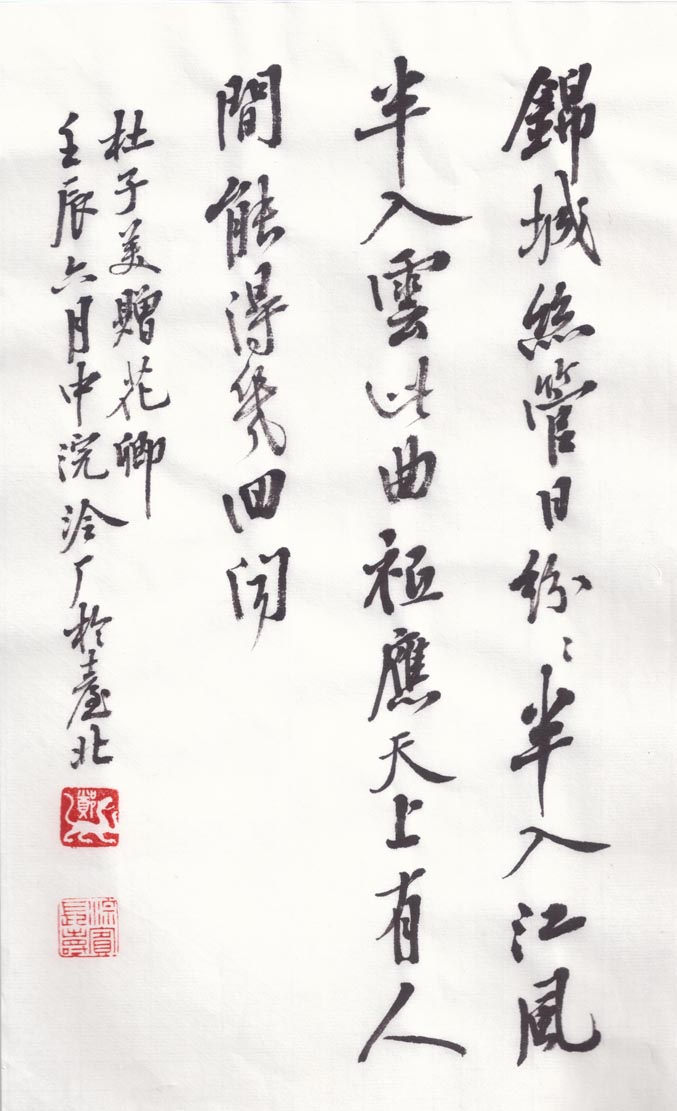 錦城絲管日紛〻半入江風
半入雲此曲祗應天上有人
間能得幾回聞
杜子美贈花卿
壬辰六月中浣泠厂於臺北